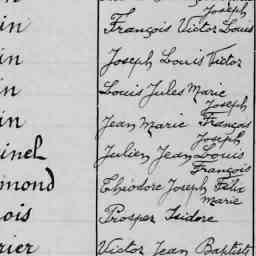 Joseph
in François Victor Louis
in Joseph Louis Victor
in Louis Jules Marie
Joseph
in Jean Marie François
Joseph
inel Julien Jean Louis
François
mond Théodore Joseph Félix
Marie
ois Prosper Isidore
rier Victor Jean Baptiste